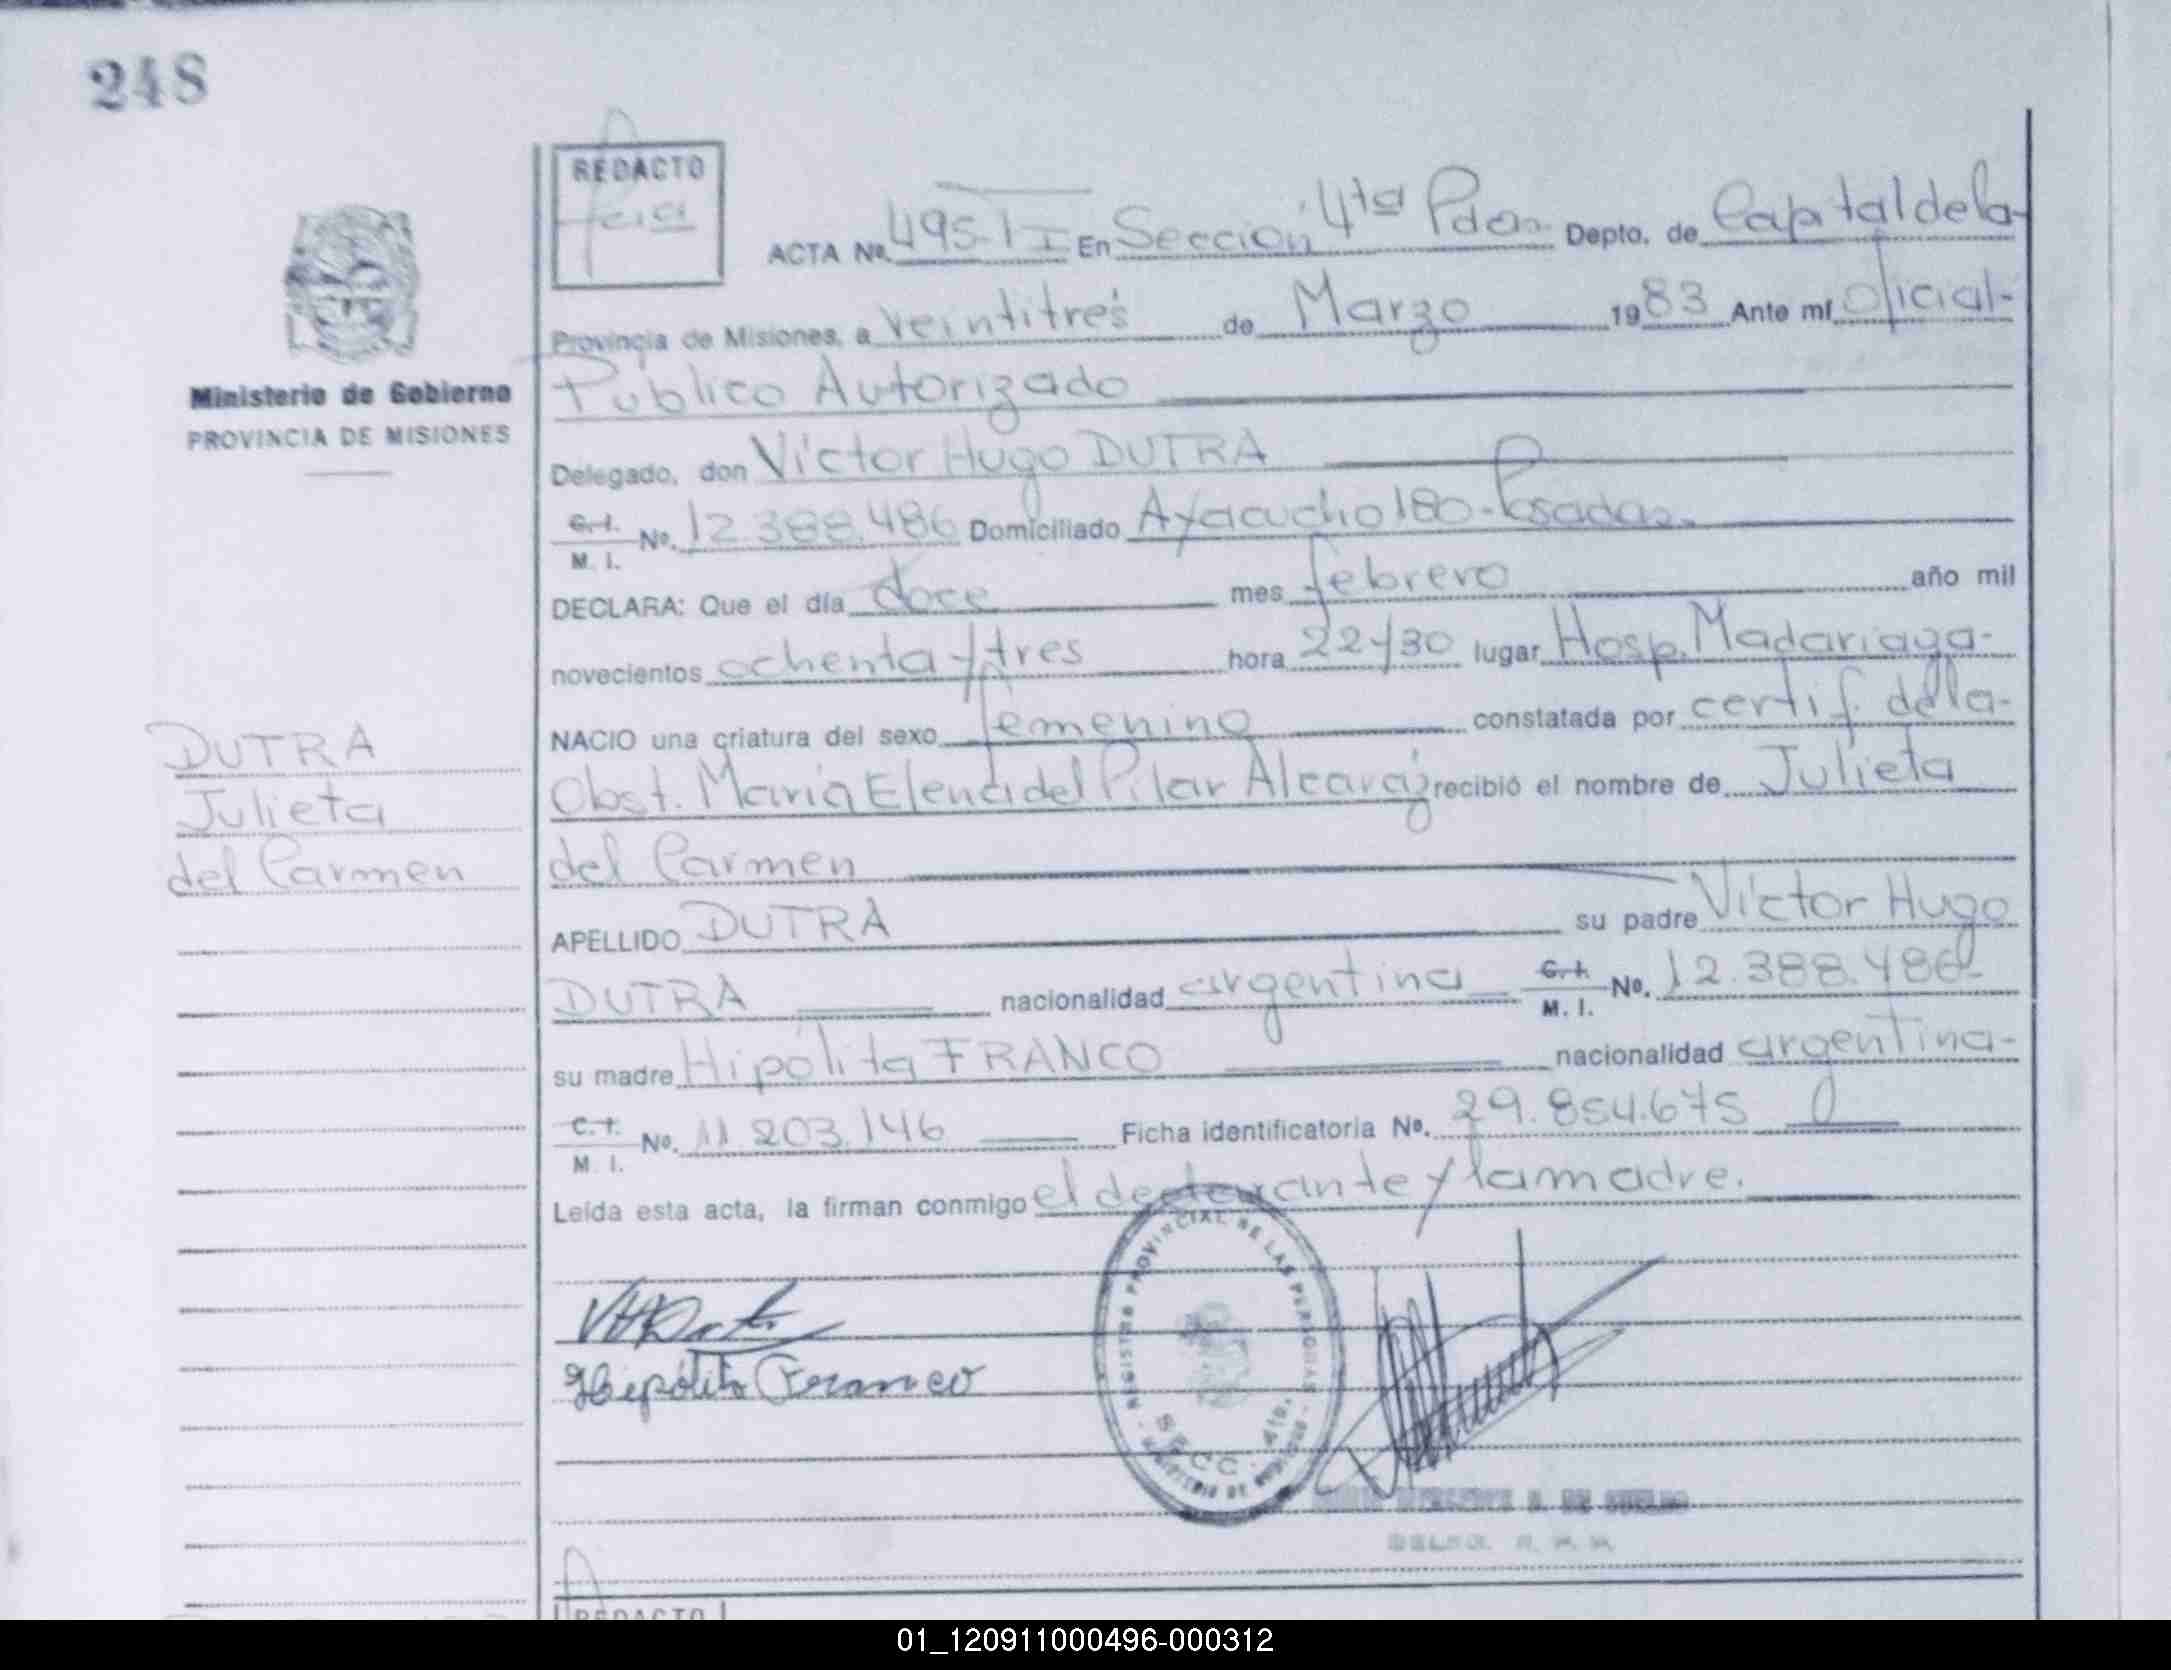 248
REDACTO
ACTA Nº 495-I En Sección 4ta Pdas. Depto. de Capital de la-
Provincia de Misiones, a veintitrés de Marzo 1983 Ante mí oficial-
Ministerio de Gobierno
PROVINCIA DE MISIONES
Público Autorizado
Delegado, don Víctor Hugo DUTRA
C. I. M. I. Nº. 12.388.486 Domiciliado Ayacucho 180-Posadas.
DECLARA: Que el día doce mes febrero año mil
novecientos ochenta y tres hora 22y30 lugar Hosp. Madariaga-
NACIO una criatura del sexo femenino constatada por certif. de la-
DUTRA
Julieta
del Carmen
Obst. María Elena del Pilar Alcaráz recibió el nombre de Julieta
del Carmen
APELLIDO DUTRA su padre Víctor Hugo
DUTRA nacionalidad argentina C. I. M. I. Nº. 12.388.486-
su madre Hipólita FRANCO nacionalidad argentina-
C. I. M. I. Nº. 11.203.146 Ficha identificatoria Nº. 29.854.675
Leída esta acta, la firman conmigo el declarante y la madre.
REGISTRO PROVINCIAL DE LAS PERSONAS
SECC. 4ta.
MINISTERIO DE GOBIERNO
Hipólita Franco
REDACTO
01_120911000496-000312